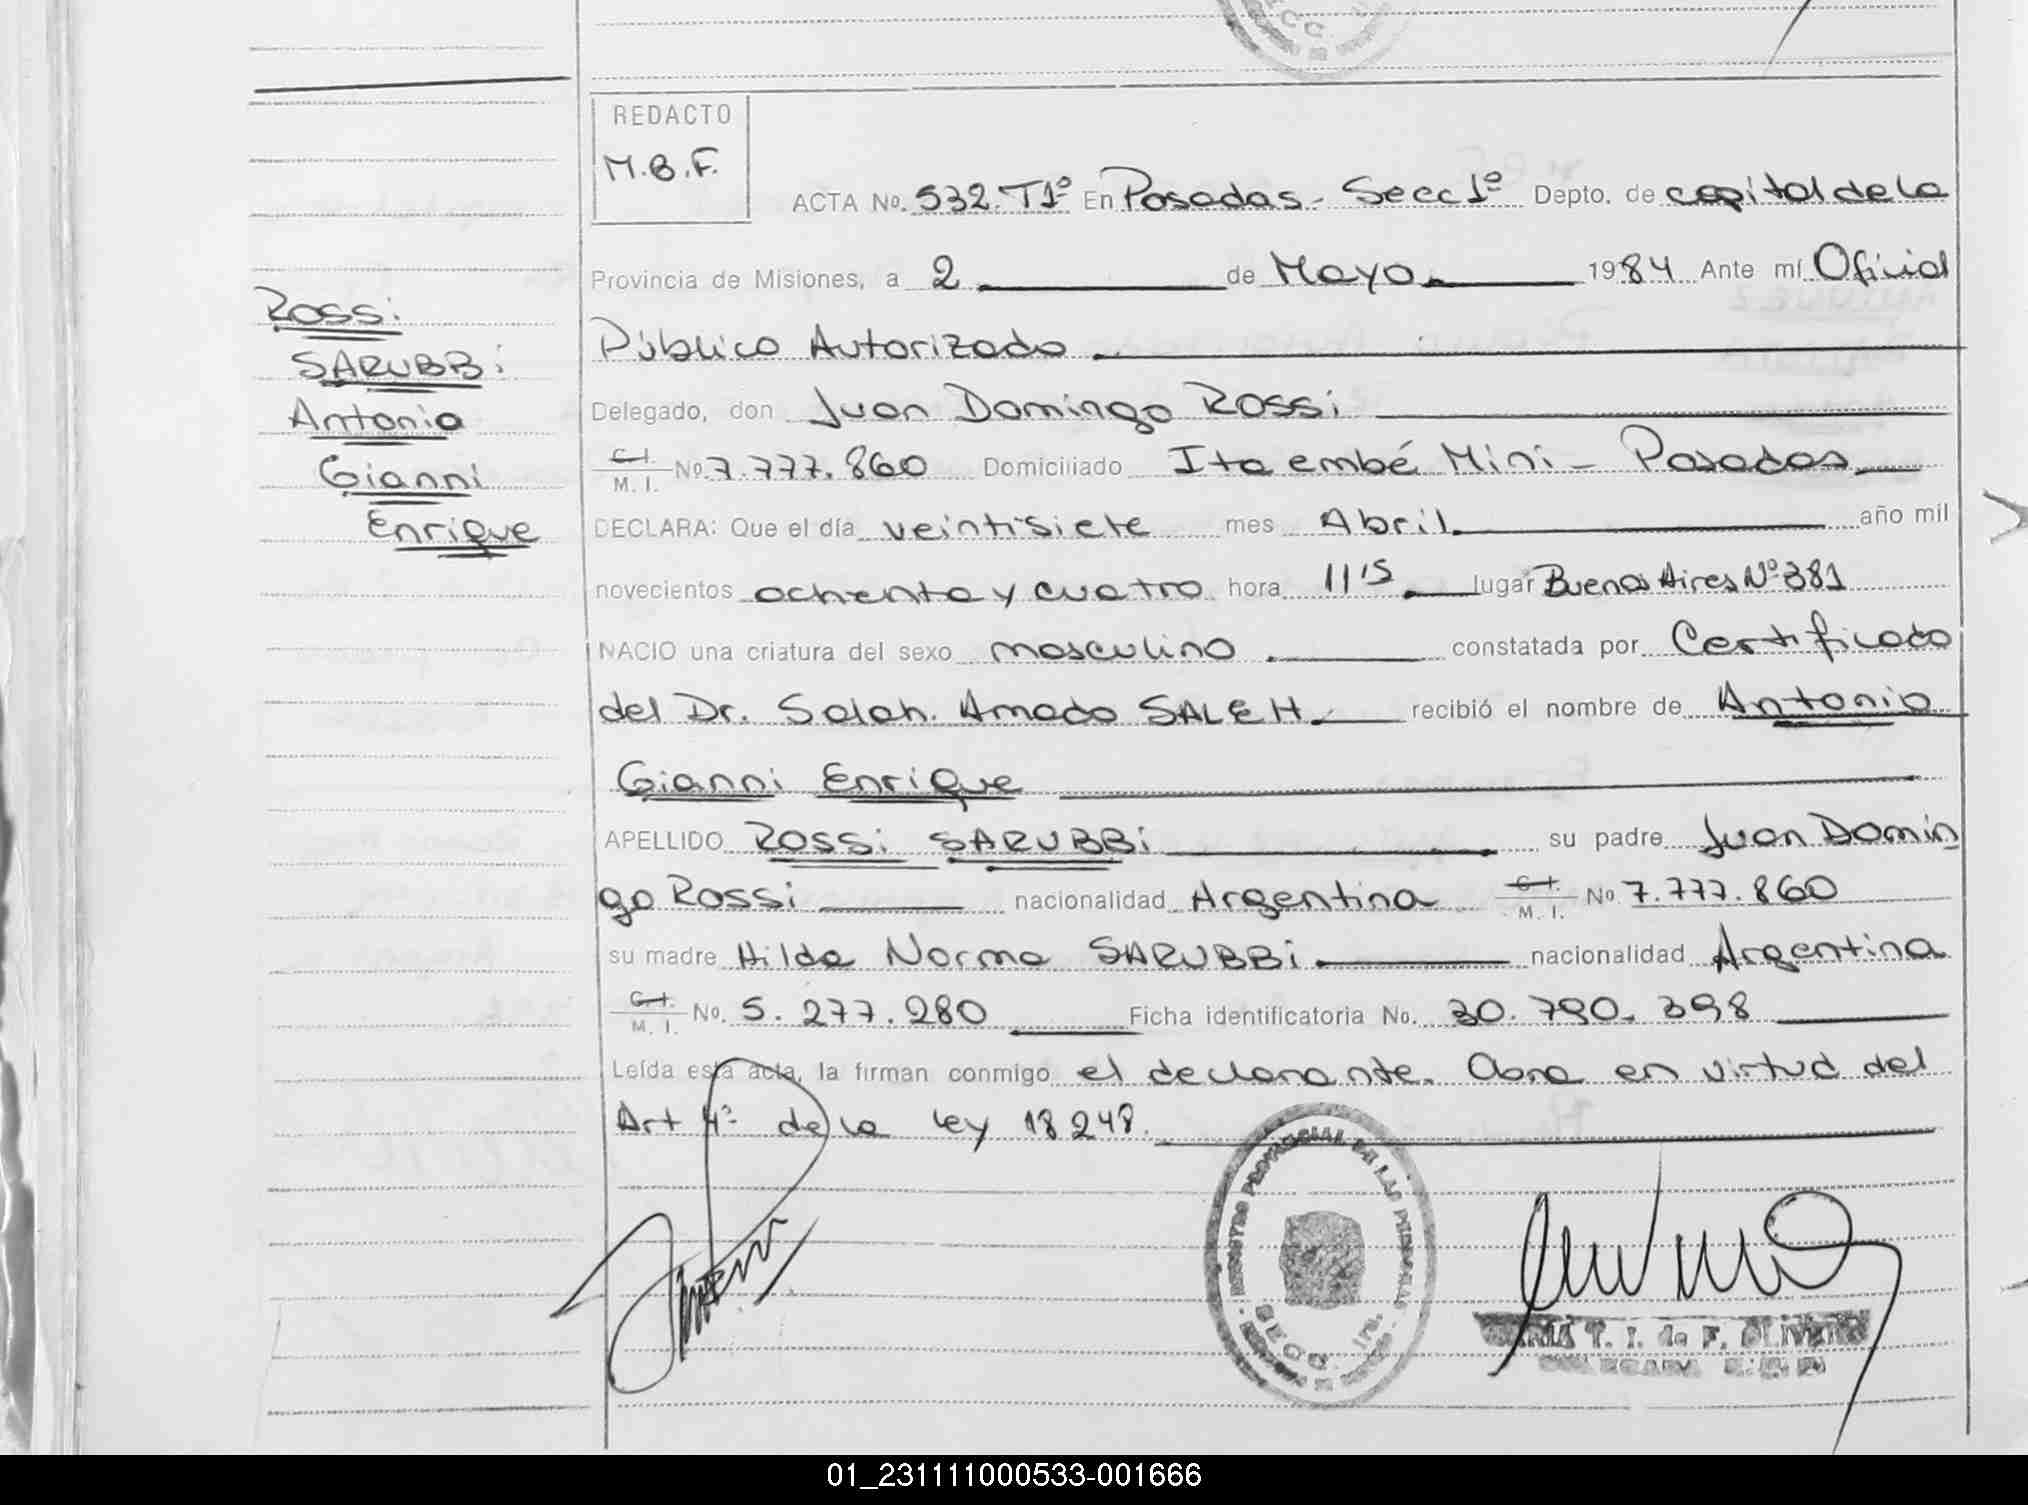 REDACTO
M.B.F.
ACTA No. 532. T1º En Posadas - Secc 1º Depto. de capital de la
Provincia de Misiones, a 2 de Mayo 1984 Ante mí Oficial
Público Autorizado
Delegado, don Juan Domingo ROSSi
C.I. M.I. No 7.777.860 Domiciliado Ita embé Mini - Posadas
DECLARA: Que el día veintisiete mes Abril año mil
novecientos ochenta y cuatro hora 11'15 lugar Buenos Aires Nº 381
NACIO una criatura del sexo masculino constatada por Certificado
del Dr. Salah. Amado SALEH recibió el nombre de Antonio
Gianni Enrique
APELLIDO ROSSi SARUBBi su padre Juan Domin
go Rossi nacionalidad Argentina C.I. M.I. No 7.777.860
su madre Hilda Norma SARUBBi nacionalidad Argentina
C.I. M.I. No. 5.277.280 Ficha identificatoria No. 30.790.398
Leída esta acta, la firman conmigo el declarante. Obra en virtud del
Art 4º de la ley 18248.
Rossi
SARUBBi
Antonio
Gianni
Enrique
REGISTRO PROVINCIAL DE LAS PERSONAS
SECC. 1ra.
T. I. de F. OLIVERA
DELEGADA
01_231111000533-001666